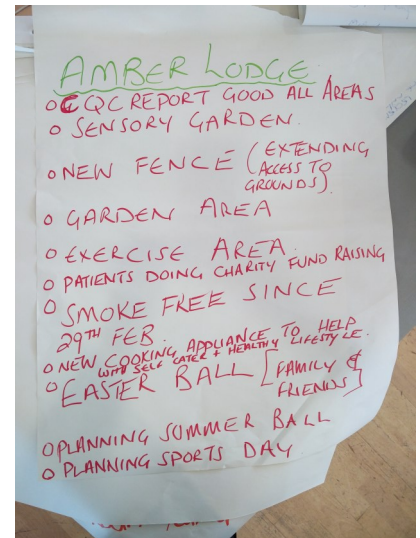 AMBER LODGE
o CQC REPORT GOOD ALL AREAS
o SENSORY GARDEN.
o NEW FENCE (EXTENDING
ACCESS TO
GROUNDS).
o GARDEN AREA
o EXERCISE AREA.
o PATIENTS DOING CHARITY FUND RAISING
o SMOKE FREE SINCE
29TH FEB.
o NEW COOKING APPLIANCE TO HELP
WITH SELF CATER + HEALTHY LIFESTYLE.
o EASTER BALL [FAMILY &
FRIENDS]
o PLANNING SUMMER BALL
o PLANNING SPORTS DAY